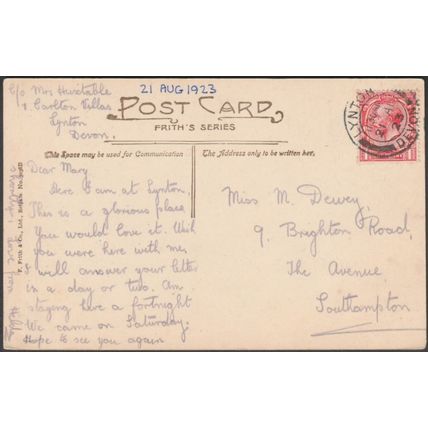 C/o Mrs Huxtable
1 Carlton Villas
Lynton
Devon.
21 AUG 1923
POST CARD
FRITH'S SERIES
This Space may be used for Communication
The Address only to be written here.
LYNTON
DEVON
Dear Mary
Here I am at Lynton.
This is a glorious place
You would love it. Wish
you were here with me.
I will answer your letter
in a day or two. Am
staying here a fortnight
We came on Saturday.
Hope to see you again
shortly love from
Hilda
Miss M. Dewey,
9, Brighton Road,
The Avenue,
Southampton
F. Frith & Co., Ltd., Reigate